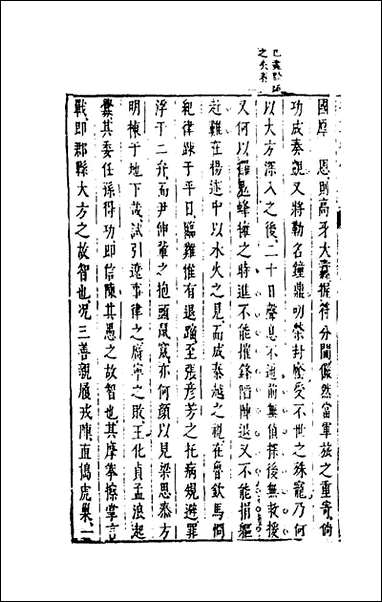 已盡黔師
之失者
國厚恩則高牙大纛握符分閫儼然當軍旅之重寄倘
功成奏觀又將勒名鐘鼎叨榮封廕受不世之殊寵乃何
以大方深入之後二十日聲息不通前無偵探後無救援
又何以猖蜂擁之時進不能摧鋒陷陣退又不能捐軀
赴難在楊述中以水火之見而成秦越之視在魯欽馬炯
紀律踈于平日臨難惟有退踰至張彥芳之托病規避罪
浮于二弁而尹伸軰之抱頭鼠竄亦何顔以見梁思泰方
明棟于地下哉試引遼事律之廣寧之敗王化貞孟浪起
釁其委任孫得功即信陳其愚之故智也其摩拳擦掌言
戰即郡縣大方之故智也况三善親履戎陳直搗虎巢一